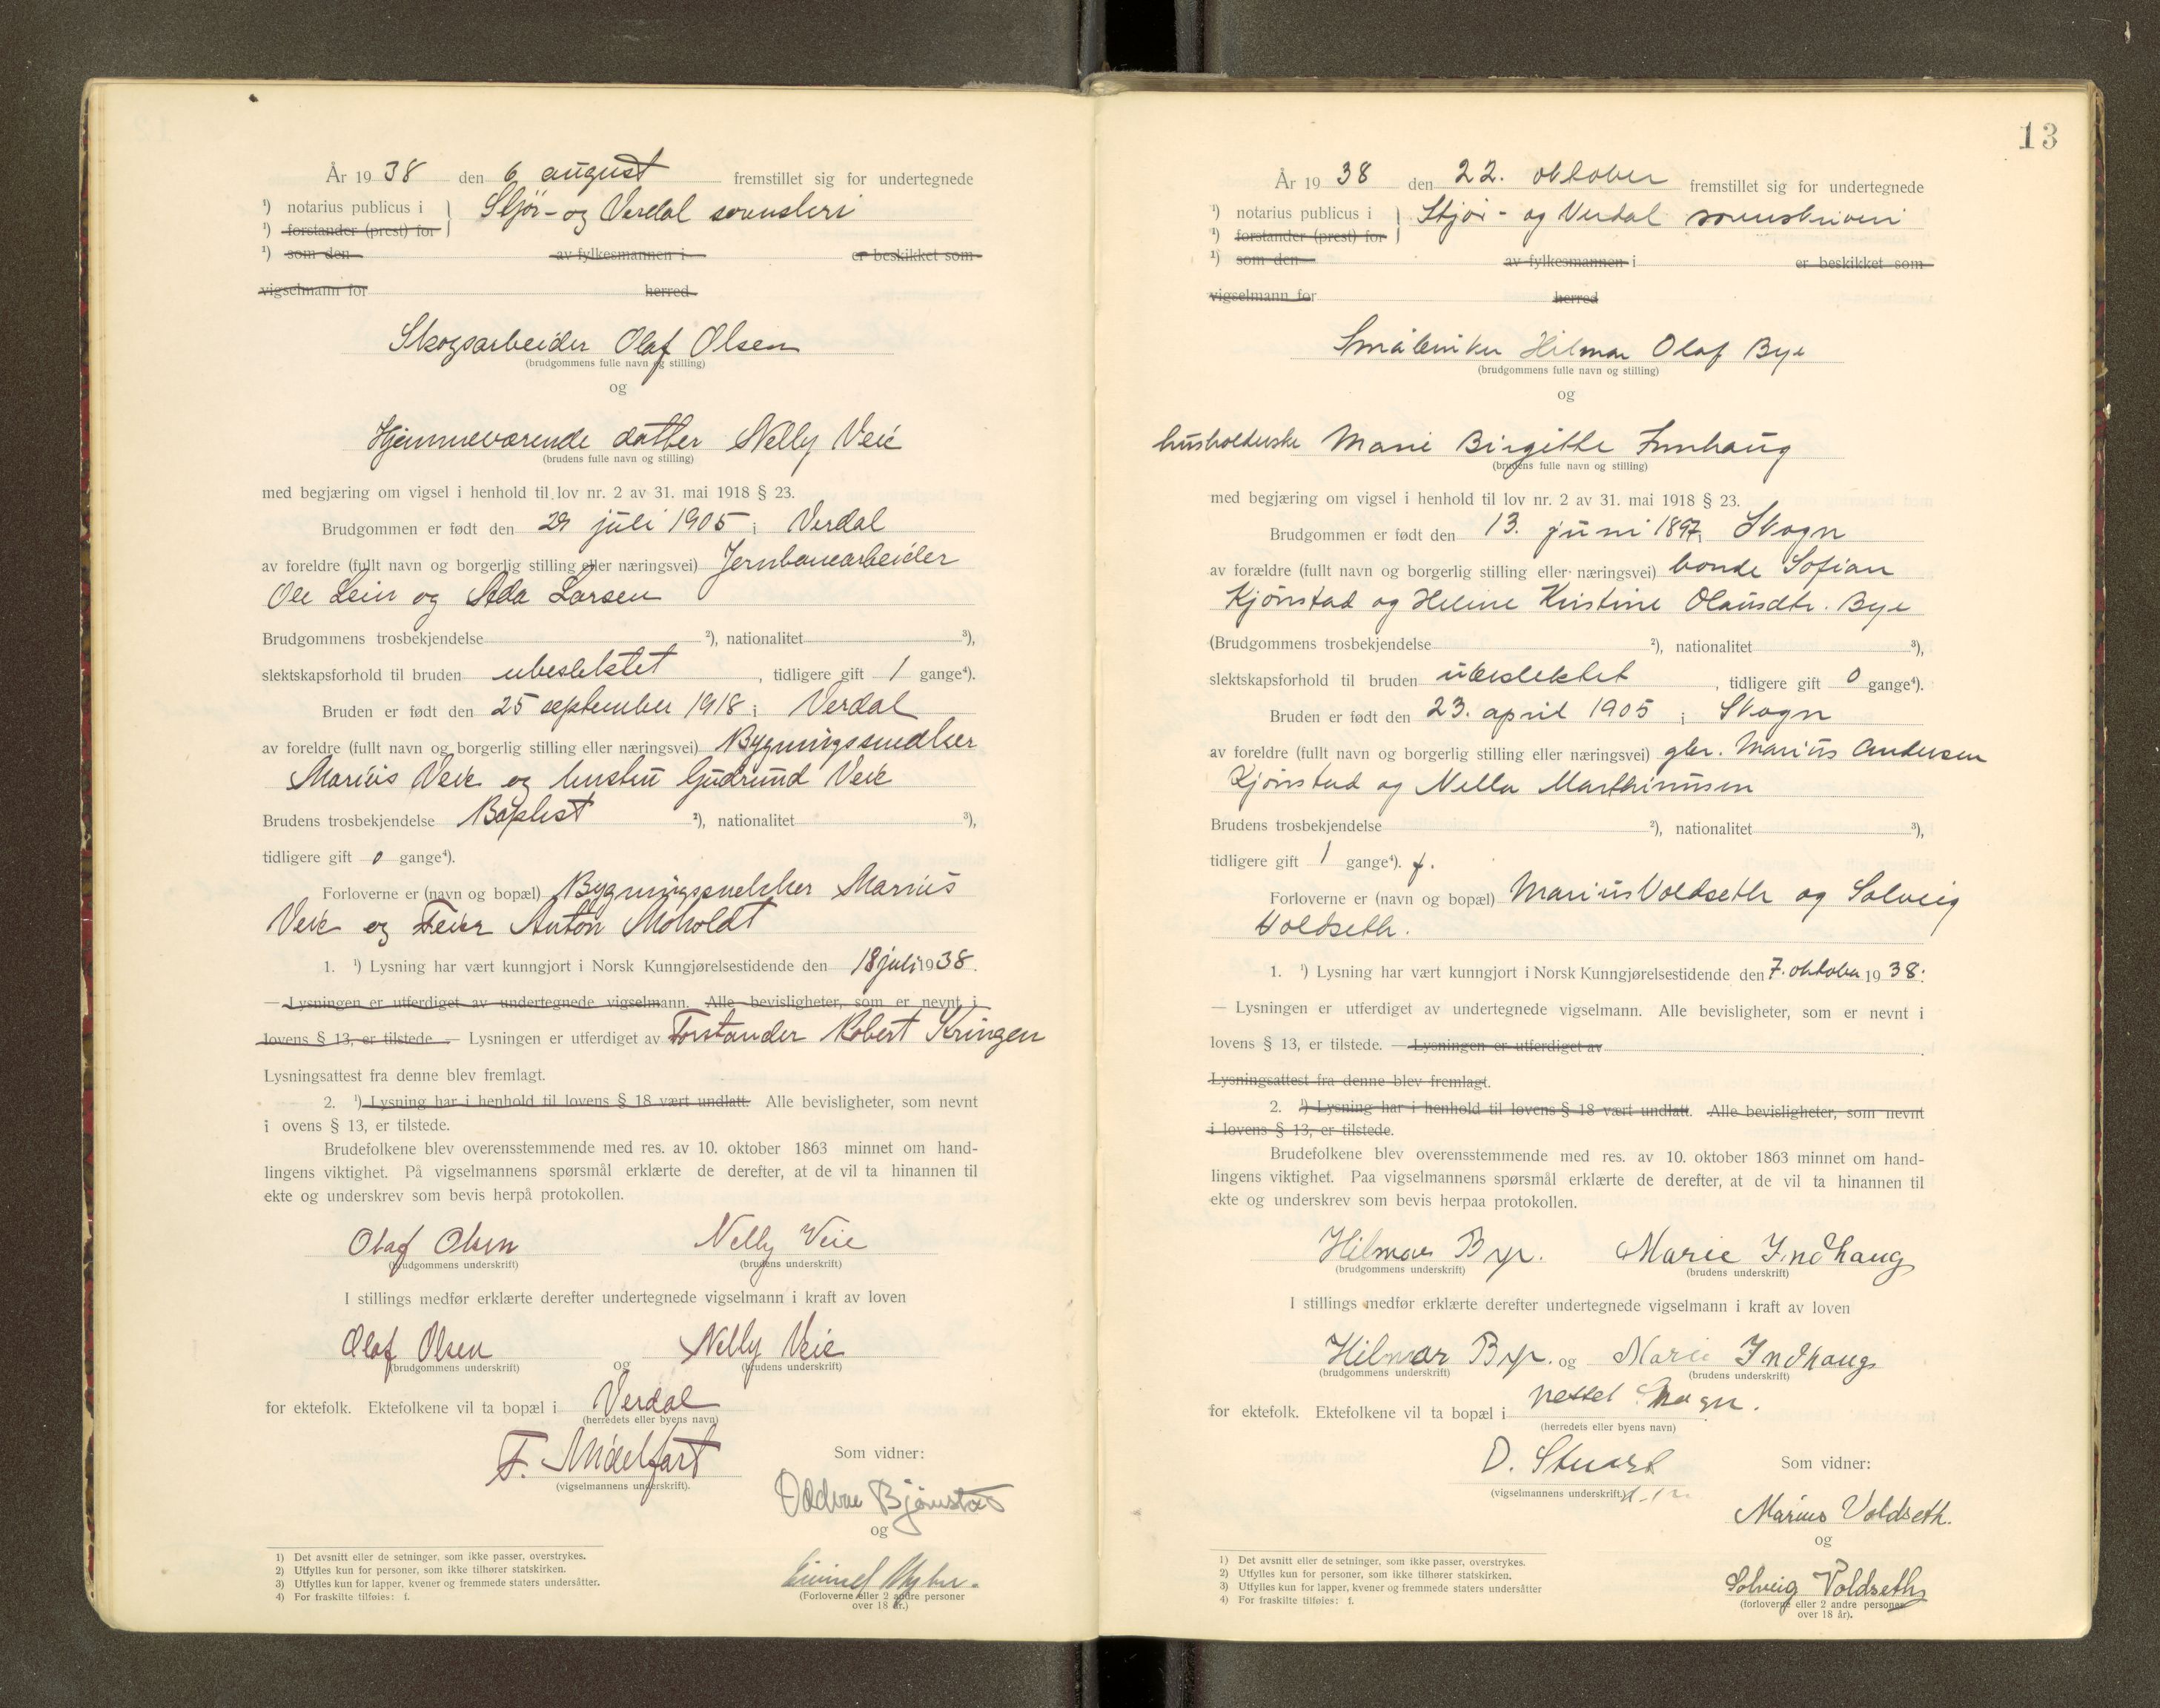 År 19 38 den 6 august fremstillet sig for undertegnede
¹) notarius publicus i } Stjør- og Verdal sorenskri
¹) forstander (prest) for
¹) som den av fylkesmannen i er beskikket som
vigselmann for herred
Skogsarbeider Olaf Olsen
(brudgommens fulle navn og stilling)
og
Hjemmeværende datter Nelly Veie
(brudens fulle navn og stilling)
med begjæring om vigsel i henhold til lov nr. 2 av 31. mai 1918 § 23.
Brudgommen er født den 29 juli 1905 i Verdal
av foreldre (fullt navn og borgerlig stilling eller næringsvei) Jernbanearbeider
Ole Lein og Ada Larsen
Brudgommens trosbekjendelse ²), nationalitet ³),
slektskapsforhold til bruden ubeslektet, tidligere gift 1 gange⁴).
Bruden er født den 25 september 1918 i Verdal
av foreldre (fullt navn og borgerlig stilling eller næringsvei) Bygningssnedker
Marius Veie og hustru Gudrund Veie
Brudens trosbekjendelse Baptist ²), nationalitet ³),
tidligere gift 0 gange⁴).
Forloverne er (navn og bopæl) Bygningssnekker Marius
Veie og Feier Anton Moholdt
1. ¹) Lysning har vært kunngjort i Norsk Kunngjørelsestidende den 18 juli 1938.
— Lysningen er utferdiget av undertegnede vigselmann. Alle bevisligheter, som er nevnt i
lovens § 13, er tilstede. — Lysningen er utferdiget av Forstander Robert Kringen
Lysningsattest fra denne blev fremlagt.
2. ¹) Lysning har i henhold til lovens § 18 vært undlatt. Alle bevisligheter, som nevnt
i ovens § 13, er tilstede.
Brudefolkene blev overensstemmende med res. av 10. oktober 1863 minnet om hand-
lingens viktighet. På vigselmannens spørsmål erklærte de derefter, at de vil ta hinannen til
ekte og underskrev som bevis herpå protokollen.
Olaf Olsen Nelly Veie
(brudgommens underskrift) (brudens underskrift)
I stillings medfør erklærte derefter undertegnede vigselmann i kraft av loven
Olaf Olsen og Nelly Veie
(brudgommens underskrift) (brudens underskrift)
for ektefolk. Ektefolkene vil ta bopæl i Verdal
(herredets eller byens navn)
F. Midelfart
(vigselmannens underskrift).
Som vidner:
Oddvar Bjørnstad
og
(Forloverne eller 2 andre personer
over 18 år.)
1) Det avsnitt eller de setninger, som ikke passer, overstrykes.
2) Utfylles kun for personer, som ikke tilhører statskirken.
3) Utfylles kun for lapper, kvener og fremmede staters undersåtter.
4) For fraskilte tilføies: f.
13
År 19 38 den 22. oktober fremstillet sig for undertegnede
¹) notarius publicus i } Stjør- og Verdal sorenskriveri
¹) forstander (prest) for
¹) som den av fylkesmannen i er beskikket som
vigselmann for herred
Småbruker Hilmar Olaf Bye
(brudgommens fulle navn og stilling)
og
husholderske Marie Birgitte Innhaug
(brudens fulle navn og stilling)
med begjæring om vigsel i henhold til lov nr. 2 av 31. mai 1918 § 23.
Brudgommen er født den 13. juni 1897 i Skogn
av forældre (fullt navn og borgerlig stilling eller næringsvei) bonde Sofian
Kjønstad og Helene Kristine Olausdtr. Bye
(Brudgommens trosbekjendelse ²), nationalitet ³),
slektskapsforhold til bruden ubeslektet, tidligere gift 0 gange⁴).
Bruden er født den 23. april 1905 i Skogn
av foreldre (fullt navn og borgerlig stilling eller næringsvei) gbr. Marius Andersen
Kjønstad og Nella Marthinussen
Brudens trosbekjendelse ²), nationalitet ³),
tidligere gift 1 gange⁴). f.
Forloverne er (navn og bopæl) Marius Voldseth og Solveig
Voldseth.
1. ¹) Lysning har vært kunngjort i Norsk Kunngjørelsestidende den 7. oktober 1938.
— Lysningen er utferdiget av undertegnede vigselmann. Alle bevisligheter, som er nevnt i
lovens § 13, er tilstede. — Lysningen er utferdiget av
Lysningsattest fra denne blev fremlagt.
2. ¹) Lysning har i henhold til lovens § 18 vært undlatt. Alle bevisligheter, som nevnt
i lovens § 13, er tilstede.
Brudefolkene blev overensstemmende med res. av 10. oktober 1863 minnet om hand-
lingens viktighet. Paa vigselmannens spørsmål erklærte de derefter, at de vil ta hinannen til
ekte og underskrev som bevis herpaa protokollen.
Hilmar Bye. Marie Indhaug
(brudgommens underskrift) (brudens underskrift)
I stillings medfør erklærte derefter undertegnede vigselmann i kraft av loven
Hilmar Bye. og Marie Indhaug
(brudgommens underskrift) (brudens underskrift)
for ektefolk. Ektefolkene vil ta bopæl i Skogn.
(herredets eller byens navn)
D. Stuart
(vigselmannens underskrift.)
Som vidner:
Marius Voldseth.
og
Solveig Voldseth
(forloverne eller 2 andre personer
over 18 år).
1) Det avsnitt eller de setninger, som ikke passer, overstrykes.
2) Utfylles kun for personer, som ikke tilhører statskirken.
3) Utfylles kun for lapper, kvener og fremmede staters undersåtter
4) For fraskilte tilføies: f.